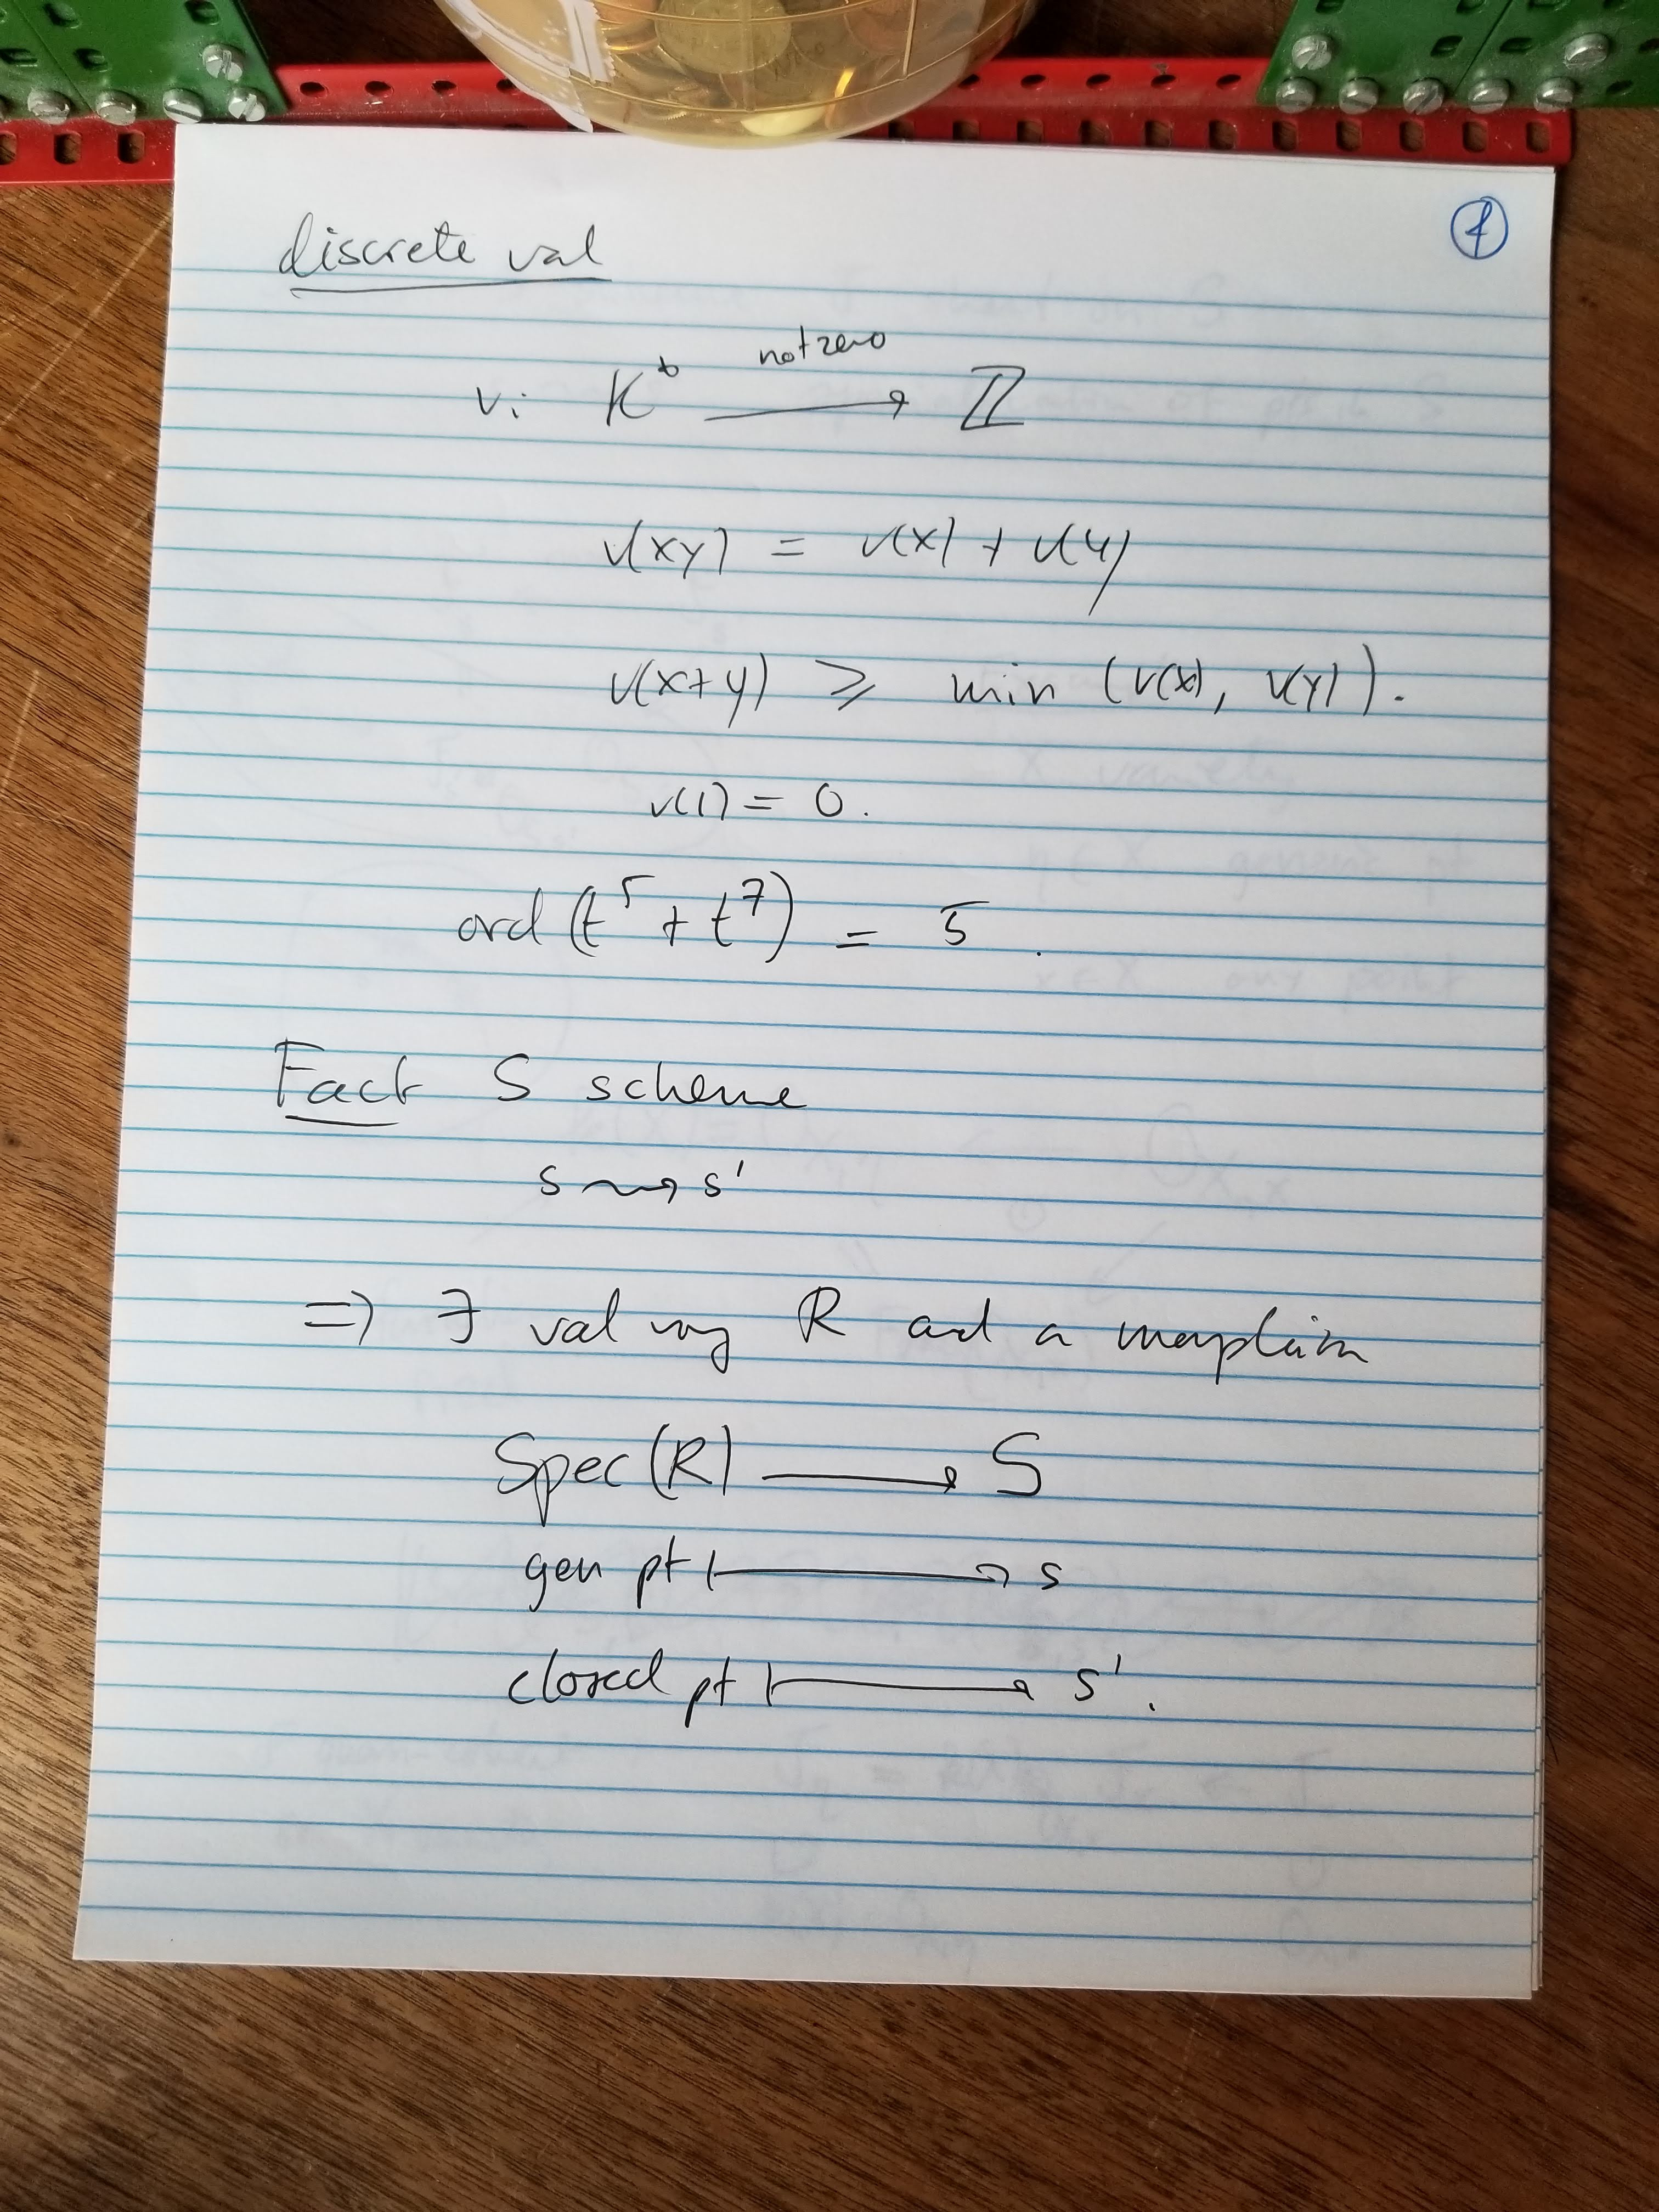 ①
discrete val
v: K* ⟶ ℤ
not zero
v(xy) = v(x) + v(y)
v(x+y) ⩾ min (v(x), v(y)).
v(1) = 0.
ord (t⁵ + t⁷) = 5.
Fact S scheme
s ⇝ s'
⇒ ∃ val ring R and a morphism
Spec(R) ⟶ S
gen pt ⟼ s
closed pt ⟼ s'.